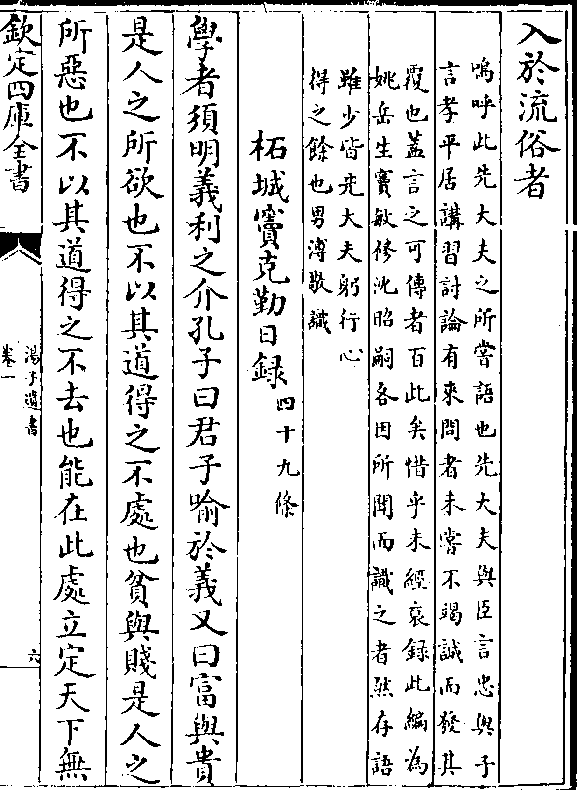 入於流俗者
嗚呼此先大夫之所嘗語也先大夫與臣言忠與子
言孝平居講習討論有來問者未嘗不竭誠而發其
覆也蓋言之可傳者百此矣惜乎未經裒録此編為
姚岳生竇敏修沈昭嗣各因所聞而識之者然存語
雖少皆先大夫躬行心
得之餘也男溥敬識
柘城竇克勤日録四十九條
學者須明義利之介孔子曰君子喻於義又曰富與貴
是人之所欲也不以其道得之不處也貧與賤是人之
所惡也不以其道得之不去也能在此處立定天下無
欽定四庫全書
湯子遺書
卷一
六